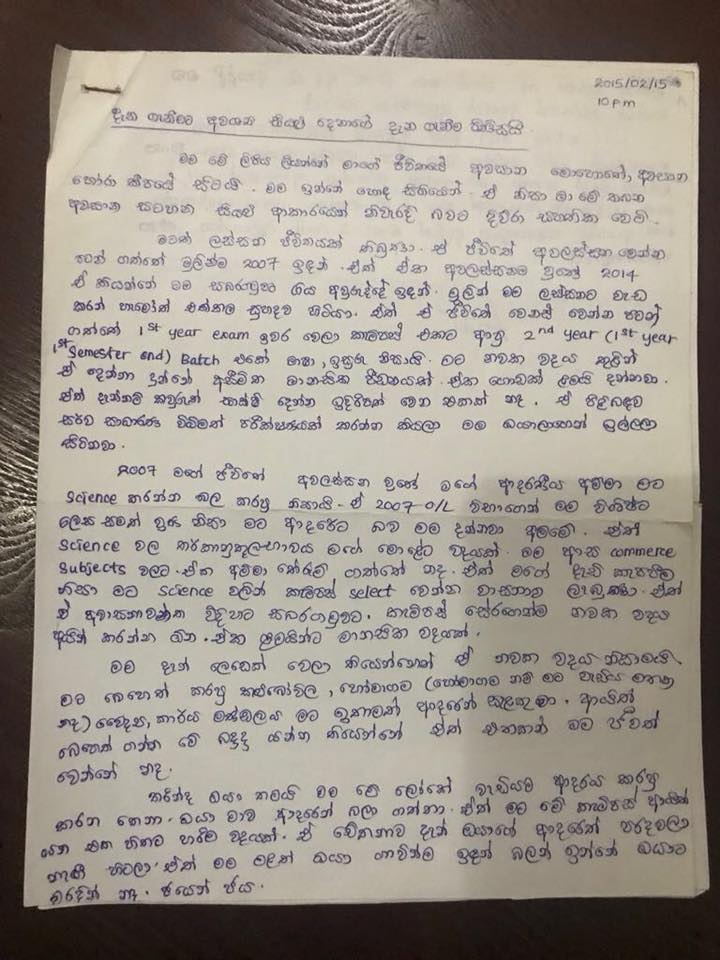 2015/02/15
10 pm
දැන ගැනීමට අවශ්‍ය සියළු දෙනාගේ දැන ගැනීම පිණිසයි.
මම මේ ලිපිය ලියන්නේ මාගේ ජීවිතයේ අවසාන මොහොතේ, අවසාන
හෝරා කීපයේ සිටයි. මම ඉන්නේ හොඳ සිහියෙන්. ඒ නිසා මා මේ තබන
අවසාන සටහන සියළු ආකාරයෙන් නිවැරදි බවට දිවුරා සහතික වෙමි.
මටත් ලස්සන ජීවිතයක් තිබුණා. ඒ ජීවිතේ අවලස්සන වෙන්න
පටන් ගත්තේ මුලින්ම 2007 ඉඳන්. ඒත් ඒක අවලස්සනම වුනේ 2014
ඒ කියන්නේ මම සබරගමුව ගිය අවුරුද්දේ ඉඳන්. මුලින් මම ලස්සනට වැඩ
කරන් හැමෝත් එක්කල සුහදව හිටියා. ඒත් ඒ ජීවිතේ වෙනස් වෙන්න පටන්
ගත්තේ 1st year exam ඉවර වෙලා කැම්පස් එකට ආපු 2nd year (1st year
1st Semester end) Batch එකේ ඉසුරු නිසායි. මට නවක වදය තුලින්
ඒ දෙන්නා දුන්නේ අසීමිත මානසික පීඩනයක්. ඒක ගොඩක් ළමයි දන්නවා.
ඒත් දැන්නම් කවුරුත් සාක්ෂි දෙන්න ඉදිරිපත් වෙන එකක් නෑ. ඒ පිළිබඳව
සර්ව සාධාරණ විධිමත් පරීක්ෂණයක් කරන්න කියලා මම ඔයාලාගෙන් ඉල්ලා
සිටිනවා.
2007 මගේ ජීවිතේ අවලස්සන වුණේ මගේ ආදරණීය අම්මා මට
Science කරන්න බල කරපු නිසායි. ඒ 2007 O/L විභාගෙන් මම විශිෂ්ට
ලෙස සමත් වුණ නිසා මට ආදරේට බව මම දන්නවා අම්මේ. ඒත්
Science වල තර්කානුකූලභාවය මගේ මොළේට වදයක්. මම ආස commerce
Subjects වලට. ඒක අම්මා තේරුම් ගත්තේ නෑ. ඒත් මගේ දැඩි කැපවීම
නිසා මට science වලින් කැම්පස් select වෙන්න වාසනාව ලැබුණා. ඒත්
ඒ අවාසනාවන්ත විදිහට සබරගමුවට. කැම්පස් සේරගෙන්ම නවක වදය
අයින් කරන්න ඕන. ඒක ළමයින්ට මානසික වදයක්.
මම දැන් ලෙඩෙක් වෙලා තියෙන්නෙත් ඒ නවක වදය නිසාමයි.
මට බෙහෙත් කරපු කළුබෝවිල, හෝමාගම (හෝමාගම නම් මට වැඩිය මතක
නෑ) වෛද්‍ය, කාර්ය මණ්ඩලය මට ඉතාමත් ආදරෙන් සැලකුණා. ආයිත්
බෙහෙත් ගන්න මේ යන්න තියෙන්නේ ඒත් එතකන් මම ජීවත්
වෙන්නේ නෑ.
තරින්ද ඔයා තමයි මම මේ ලෝකේ වැඩියම ආදරය කරපු
කරන කෙනා. ඔයා මාව ආදරෙන් බලා ගත්තා. ඒත් මට මේ කැම්පස් ආයිත්
යන එක හිතට හරිම වදයක්. ඒ වේතනාව දැන් ඔයාගේ ආදරෙත් පරදවලා
නැඟී හිටලා. ඒත් මම මළත් ඔයා ගාවින්ම ඉඳන් බලන් ඉන්නේ ඔයාට
කරදින් නෑ. ජයෙන් ජය.